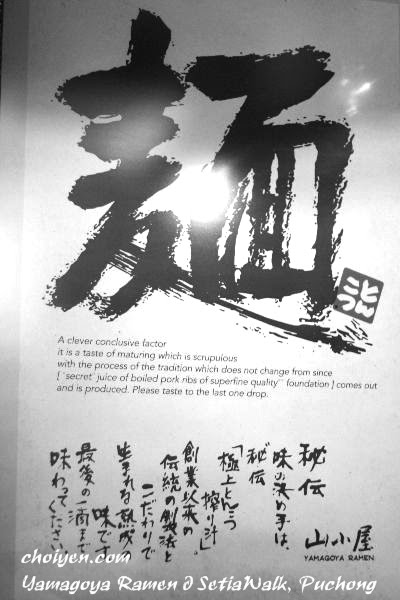 麺
とん
こつ
A clever conclusive factor
it is a taste of maturing which is scrupulous
with the process of the tradition which does not change from since
[ `secret` juice of boiled pork ribs of superfine quality`` foundation ] comes out
and is produced. Please taste to the last one drop.
秘伝
味の決め手は、
秘伝
「極上とんこつ搾り汁」
創業以来の
伝統の製法と
こだわりで
生まれた熟成の
味です
最後の一滴まで
味わってください
山小屋
YAMAGOYA RAMEN
choiyen.com
Yamagoya Ramen @ SetiaWalk, Puchong